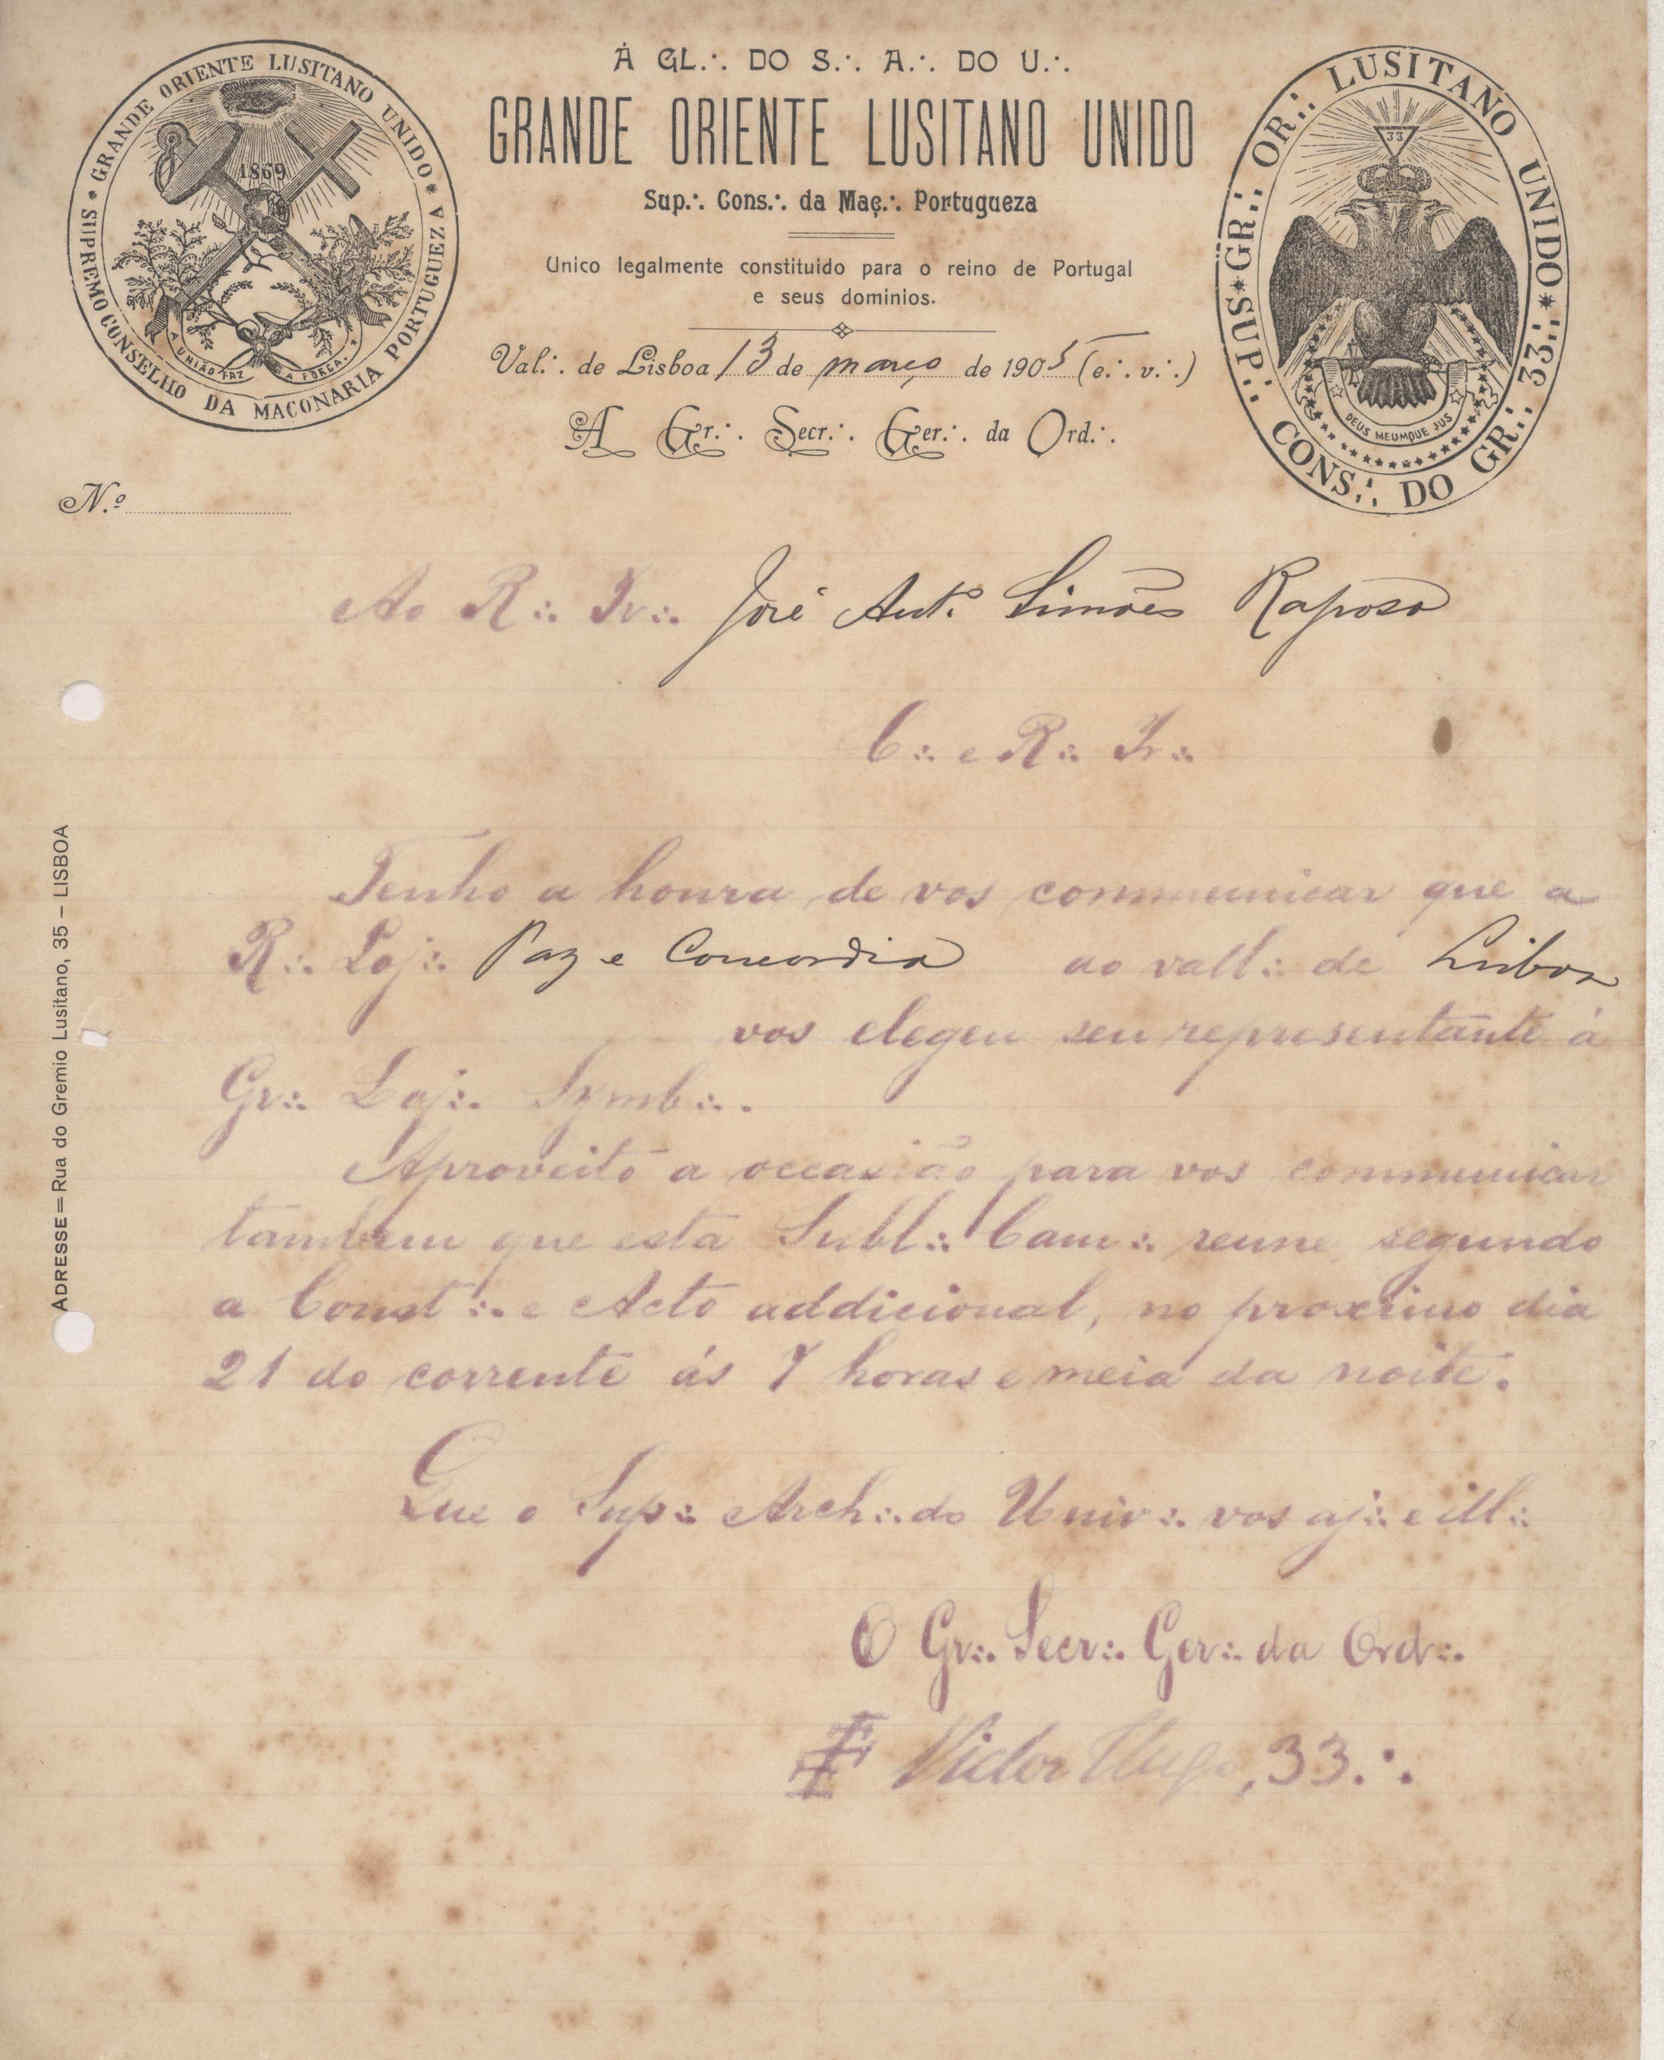 À GL.∙. DO S.∙. A.∙. DO U.∙.
GRANDE ORIENTE LUSITANO UNIDO
Sup.∙. Cons.∙. da Maç.∙. Portugueza
Unico legalmente constituido para o reino de Portugal
e seus dominios.
Val.∙. de Lisboa 13 de março de 1905 (e.∙. v.∙.)
A Gr.∙. Secr.∙. Ger.∙. da Ord.∙.
* GRANDE ORIENTE LUSITANO UNIDO *
SUPREMO CONSELHO DA MAÇONARIA PORTUGUEZA
1869
A UNIÃO FAZ A FORÇA.
SUP.∙. CONS.∙. DO GR.∙. 33.∙. * GR.∙. OR.∙. LUSITANO UNIDO *
33
DEUS MEUMQUE JUS
N.º
Ao R.∙. Ir.∙. José Ant.º Simões Raposo
C.∙. e R.∙. Ir.∙.
Tenho a honra de vos communicar que a
R.∙. Loj.∙. Paz e Concordia ao vall.∙. de Lisboa
vos elegeu seu representante á
Gr.∙. Loj.∙. Symb.∙..
Aproveito a occasião para vos communicar
tambem que esta Subl.∙. Cam.∙. reune, segundo
a Const.∙. e Acto addicional, no proximo dia
21 do corrente ás 7 horas e meia da noite.
Que o Sup.∙. Arch.∙. do Univ.∙. vos aj.∙. e ill.∙.
O Gr.∙. Secr.∙. Ger.∙. da Ord.∙.
Victor Hugo, 33.∙.
ADRESSE = Rua do Gremio Lusitano, 35 – LISBOA